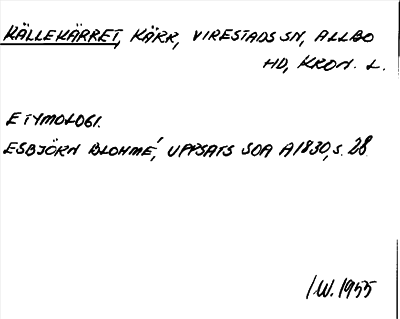 KÄLLEKÄRRET, KÄRR, VIRESTADS SN, ALLBO
HD, KRON. L.
ETYMOLOGI.
ESBJÖRN BLOHMÉ, UPPSATS SOA A1830, S. 28
I.W. 1955